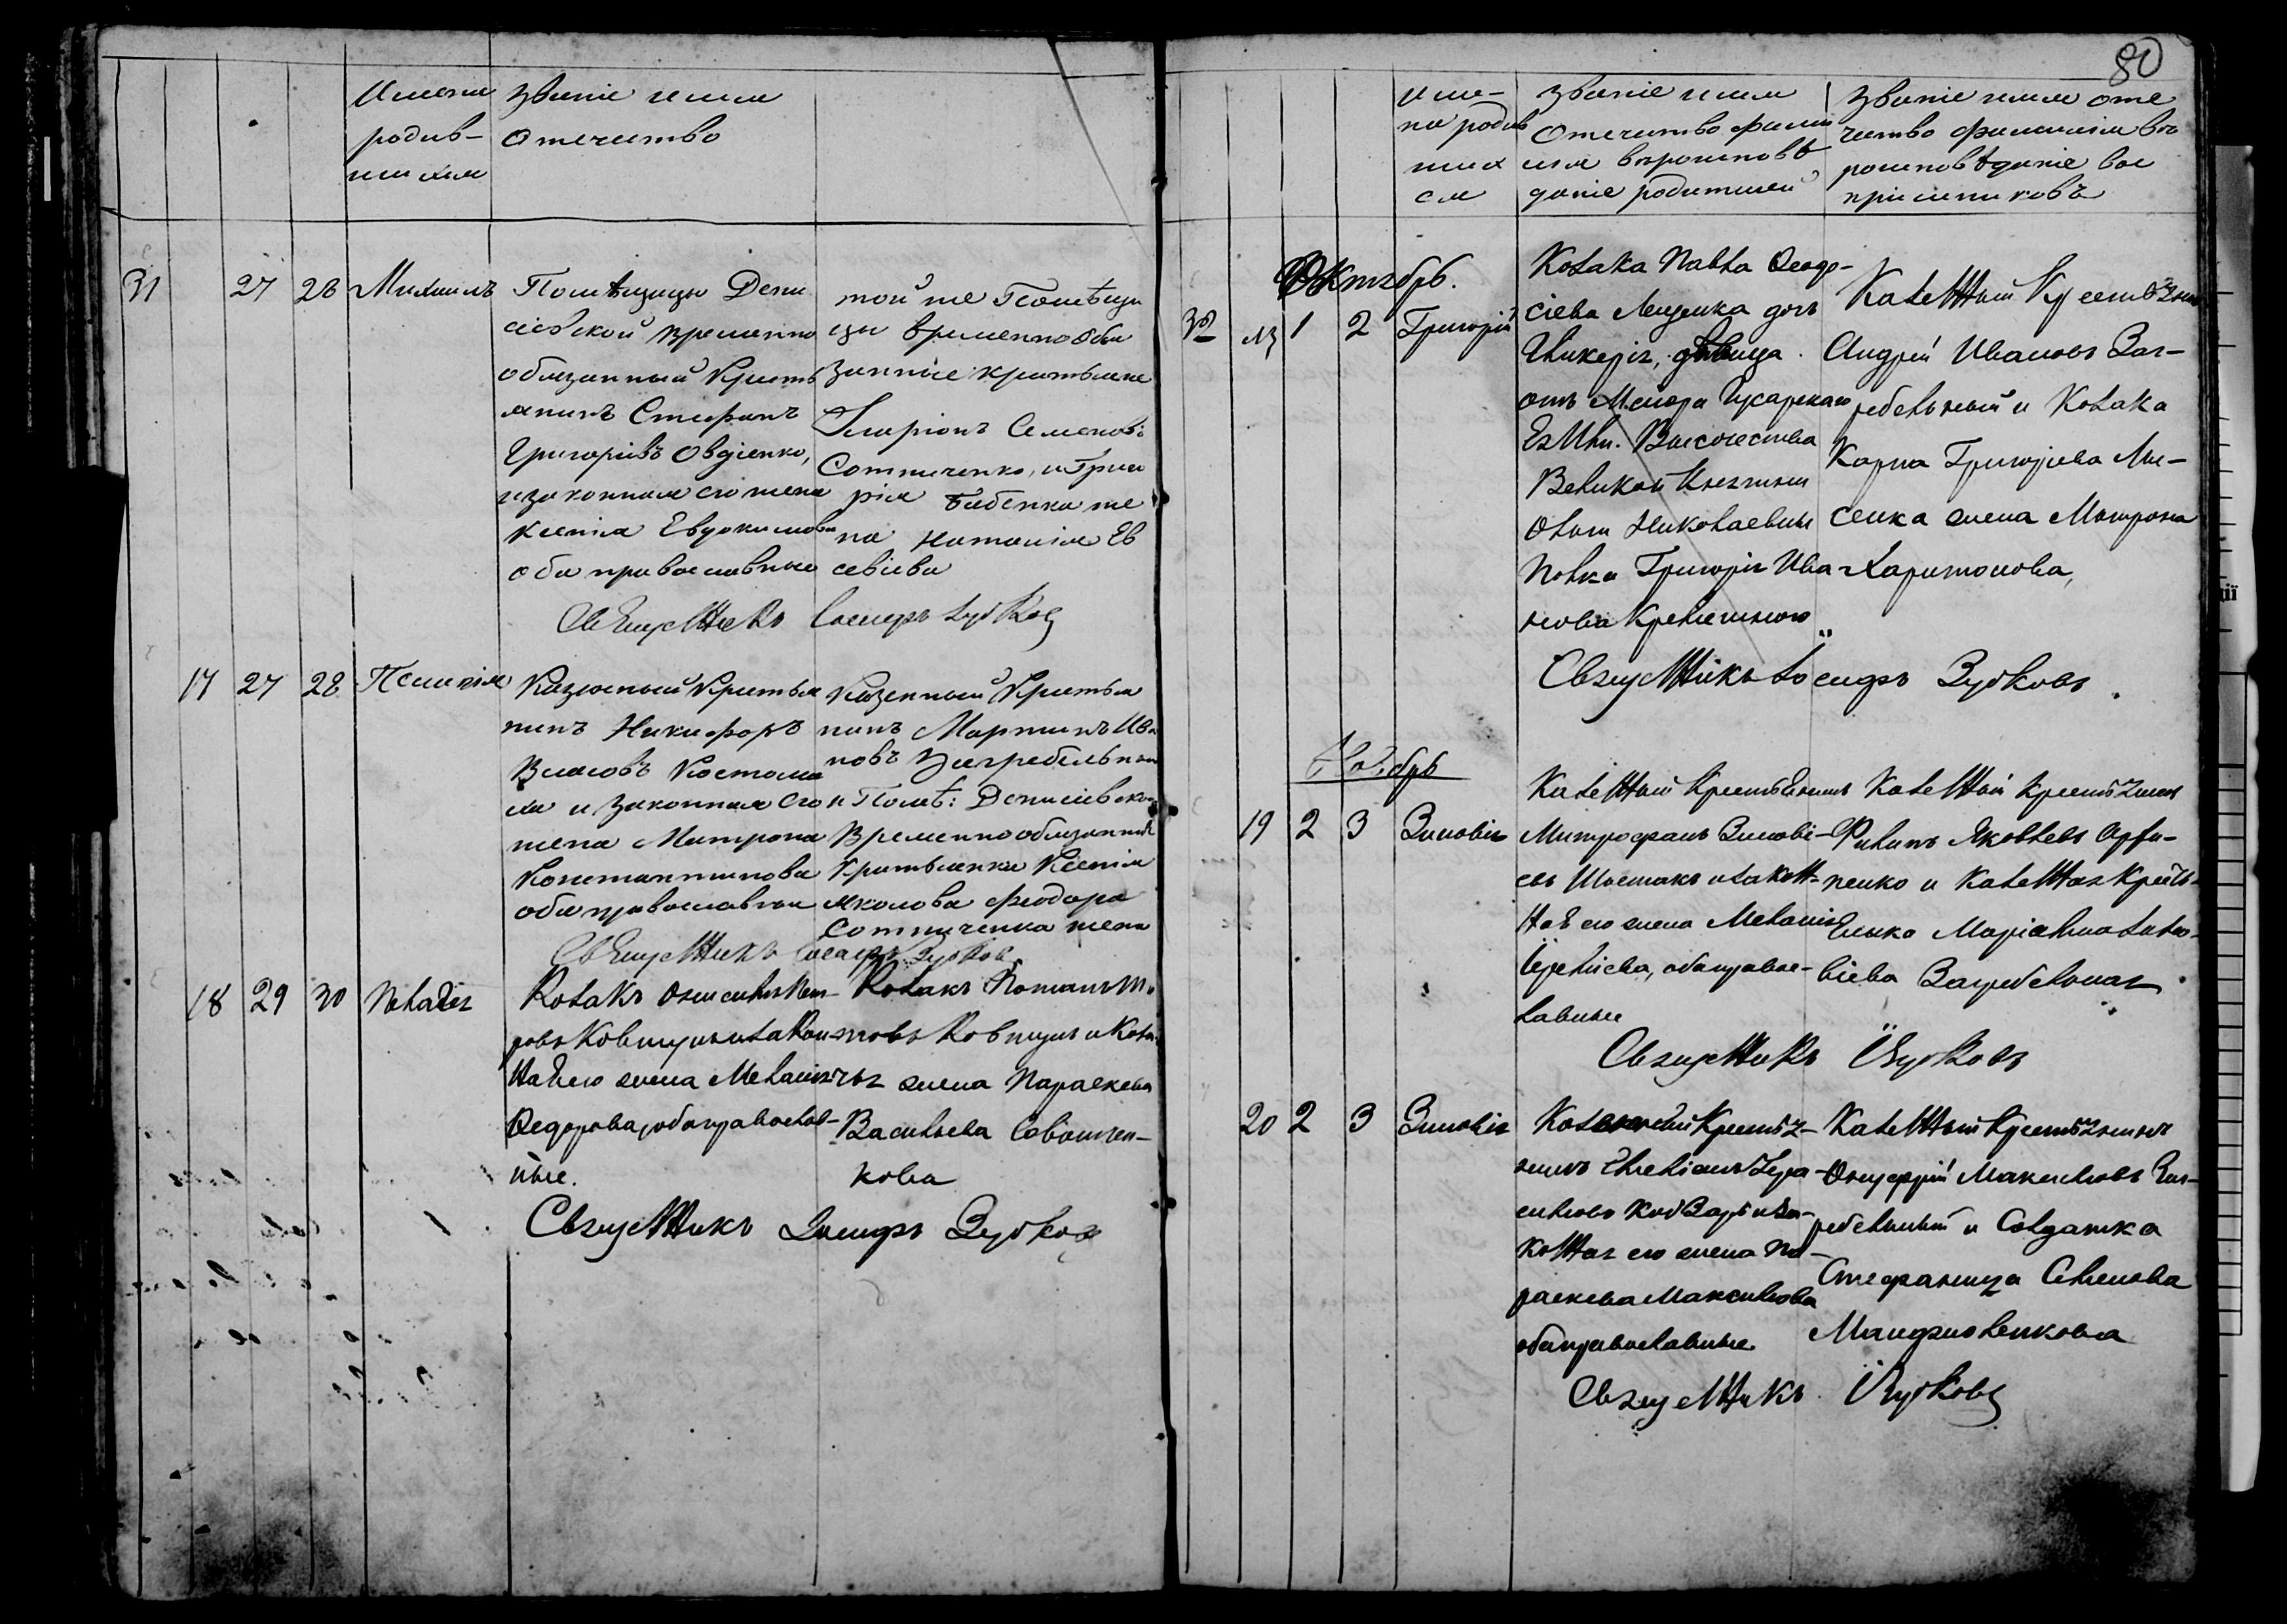 80
Имена
родив-
шихся
Званіе имя
отечество
31 27 28 Михаилъ
Помѣщицы Дени
сіевской временно
обязанный Кресть
янинъ Стефанъ
Григоріевъ Овдіенко,
и законная его жена
Ксенія Евдокимова
оба православные
той же Помѣщи
цы временнообя
занные крестьяне
Иларіонъ Семеновъ
Сотниченко, и Григо
рія Бабенка же
на Наталія Ев
севіева
Священникъ Іосифъ Зубковъ
17 27 28 Пелагія
Казенный Крестья
нинъ Никифоръ
Власовъ Костома
ха и законная его
жена Матрона
Константинова
оба православные
Казенный Крестья
нинъ Мартинъ Ива
новъ Загребельный
и Помѣ: Денисіевской
Временнообязанная
Крестьянка Ксенія
Яколова Феодора
Сотниченка жена
Священникъ Іосифъ Зубковъ
18 29 30 Пелагея
Козакъ Онисимъ Пет-
ровъ Ковшунъ и закон-
ная его жена Меланія
Ѳедорова, оба православ-
ные.
Козакъ Романъ
товъ Ковшунъ и Коза-
чья жена Параскева
Васильева
кова
Священникъ Іосифъ Зубковъ
Име-
на родив
шихъ
ся
Званіе имя
Отечество фами
лія вѣроисповѣ
даніе родителей
Званіе имя оте
чество фамилія вѣ
роисповѣданіе вос
пріемниковъ
Октябрь.
32 1 2 Григорій
Козака Павла Ѳеодо-
сіева Лещенка дочь
Гликерія, дѣвица.
отъ Маіора Гусарскаго
Ея Имп. Высочества
Великой Княгини
Ольги Николаевны
Полка Григорія Ива-
нова
Казенный Крестьянинъ
Андрей Ивановъ Заг-
ребельный и Козака
Карпа Григорьева Лы-
сенка жена Матрона
Харитонова,
Священникъ Іосифъ Зубковъ.
Ноябрь
19 2 3 Зиновія
Казенный Крестьянинъ
Митрофанъ Зиновіе-
въ Шостакъ и закон-
ная его жена Меланія
оба правос-
лавные
Казенный Крестьянинъ
Филипъ Яковлевъ
пенко и Казенная Кресть-
янка
віева Загребельная
Священникъ І Зубковъ
20 2 3 Зиновія
Казенный Крестья-
нинъ Емеліанъ Гера-
симовъ Кобзарь и за-
конная его жена Па-
раскева Максимова
оба православные.
Казенный Крестьянинъ
Онуфрій Максимовъ Заг-
ребельный и Солдатка
Стефанида Семенова
Священникъ І Зубковъ